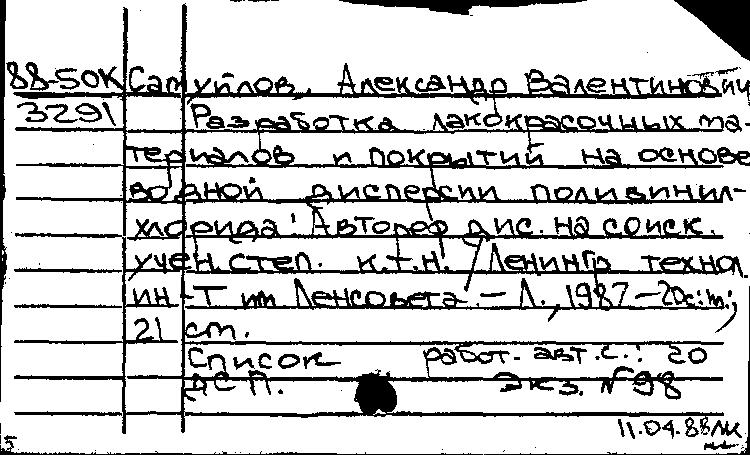 88-50К Самуйлов, Александр Валентинович
3291 Разработка лакокрасочных ма-
териалов и покрытий на основе
водной дисперсии поливинил-
хлорида: Автореф дис. на соиск.
учен. степ. к.т.н. / Ленингр технол.
ин-т им Ленсовета. – Л., 1987 – 20с.:ил.;
21 см.
Список работ. авт. с.: 20
ДСП. Экз. №98
11.04.88
5